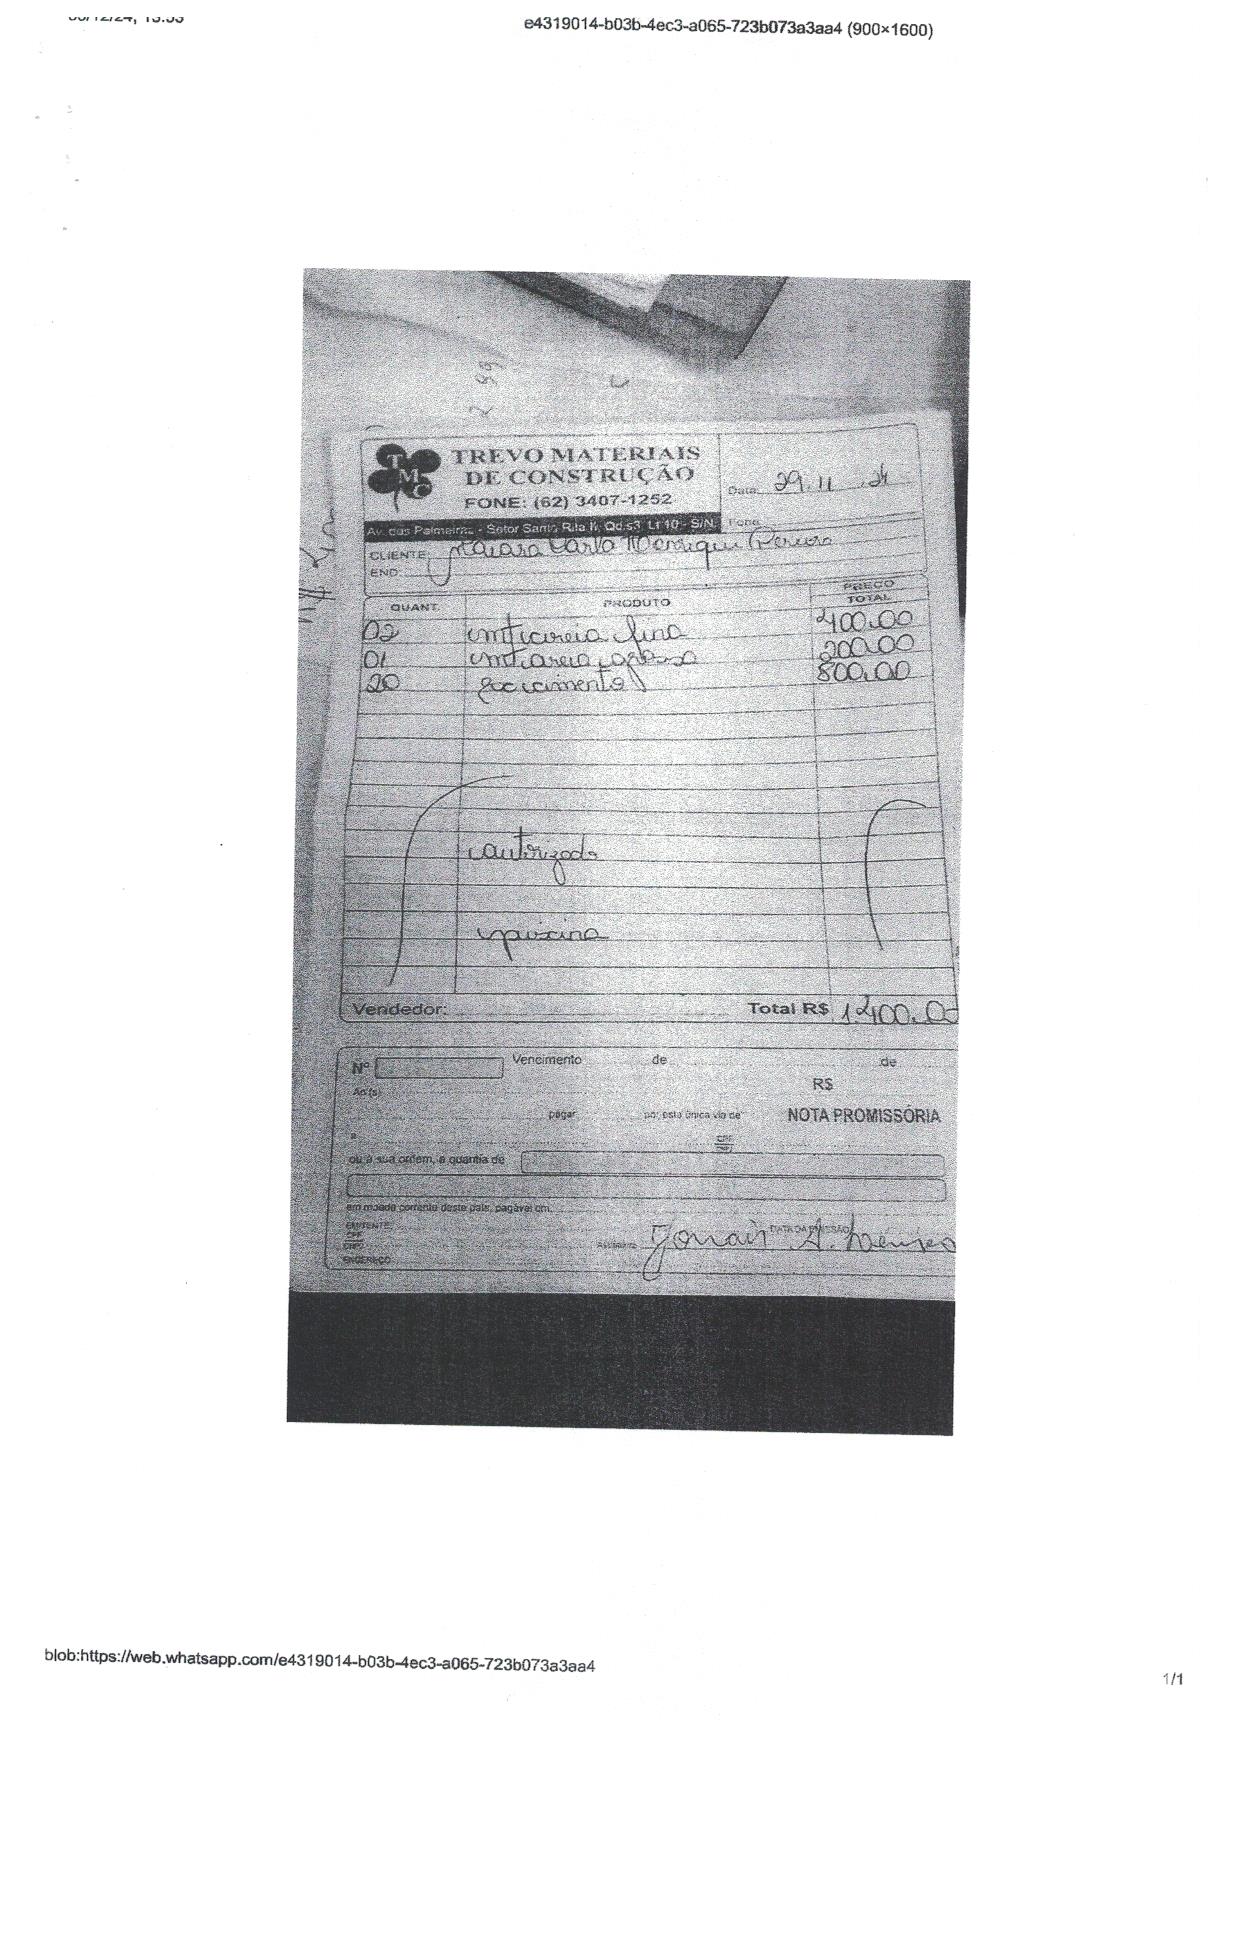 e4319014-b03b-4ec3-a065-723b073a3aa4 (900×1600)
TMC
TREVO MATERIAIS
DE CONSTRUÇÃO
FONE: (62) 3407-1252
Data 29.11.24
Av. das Palmeiras - Setor Santa Rita II, Qd 53 Lt 10 - S/N. Fone
CLIENTE: Maiara Carla Henrique Pereira
END:
QUANT. PRODUTO PREÇO TOTAL
02 mt areia fina 400,00
01 mt areia grossa 200,00
20 sc cimento 800,00
autorizado
piscina
Vendedor: Total R$ 1.400,00
Nº Vencimento de de
R$
Ao(s)
pagar por esta única via de NOTA PROMISSÓRIA
a CPF
ou à sua ordem, a quantia de
em moeda corrente deste país, pagável em
EMITENTE DATA DA EMISSÃO
CPF
CNPJ
ENDEREÇO
blob:https://web.whatsapp.com/e4319014-b03b-4ec3-a065-723b073a3aa4
1/1